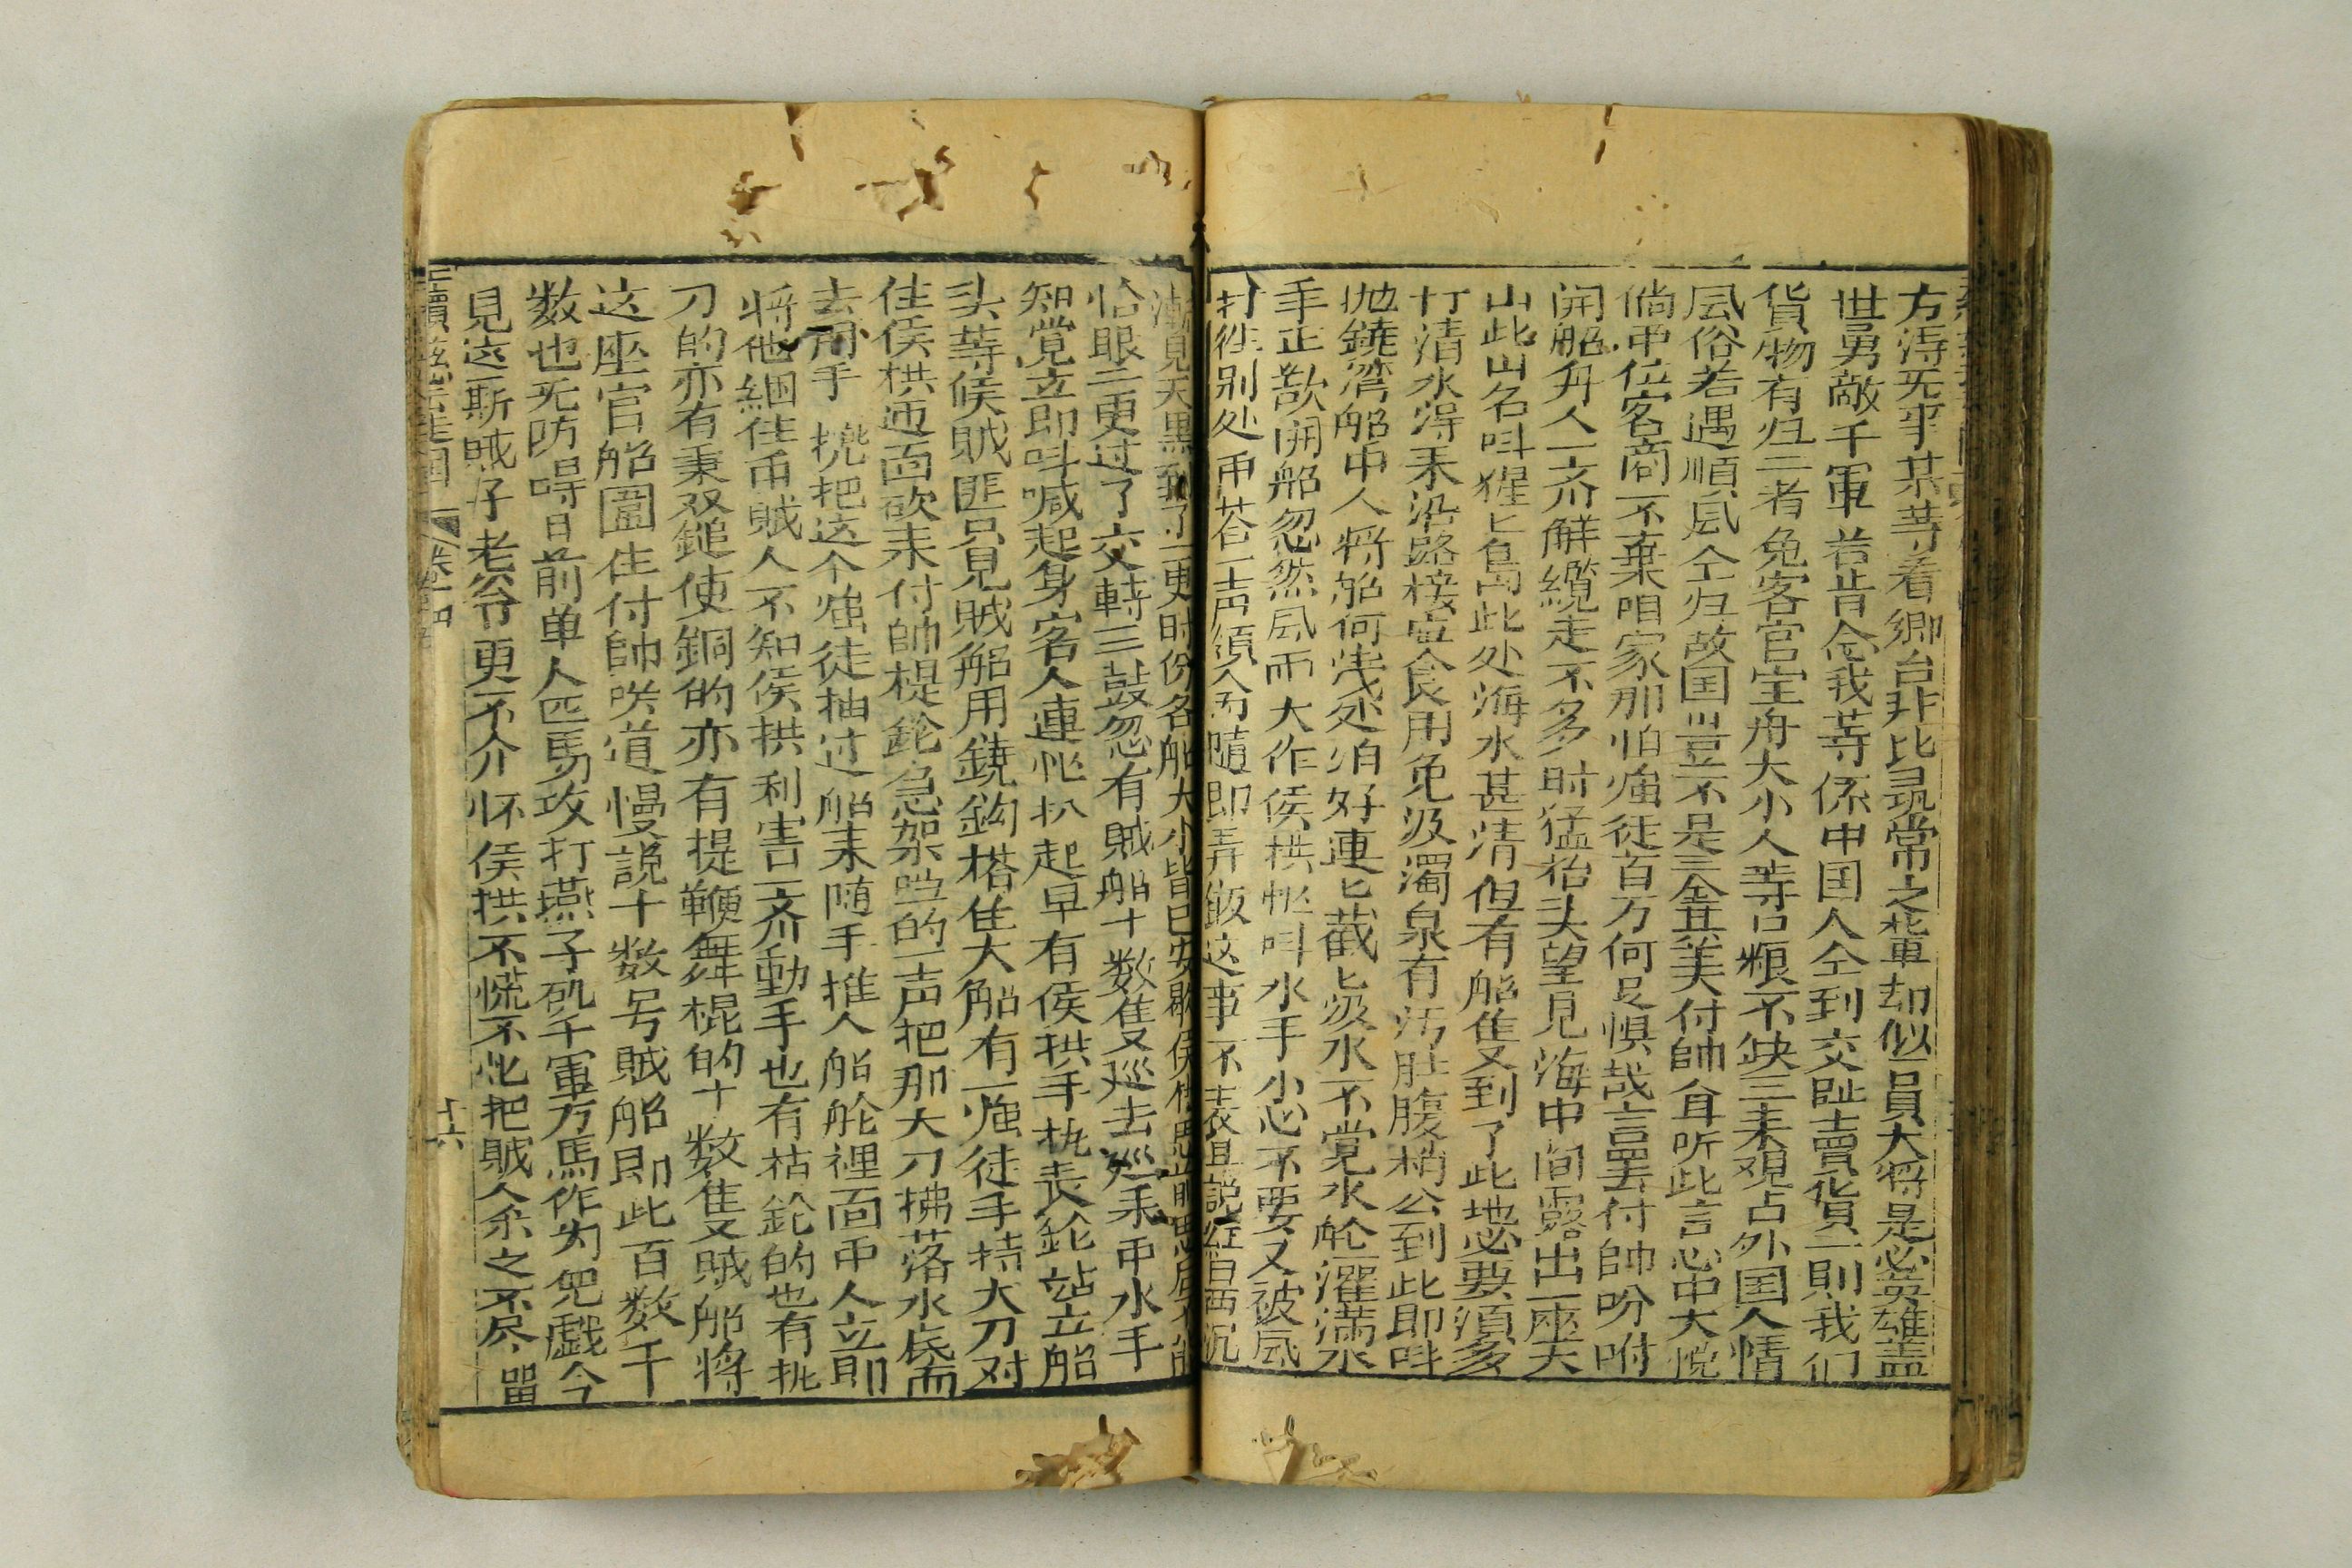 方淂旡乎某等看鄉台非比尋常之輩却似一員大將是必英雄盖
世勇敵千軍若肯合我等係中国人仝到交趾一賣貨二則我们
貨物有归二者免客官室舟大小人等口粮不缺三耒观占外国人情
風俗若遇順風仝归故囯豈不是三全其美付帥自听此言心中大悦
倘
位客商不棄咱家那怕強徒百万何足惧哉言罢付帥吩咐
開船舟人一齐觧纜走不多时猛抬头望見海中间露出一座大
山此山名呌猩匕島此处海水甚清但有船隻到了此地必要須多
打清水淂耒沿路接壶食用免汲濁泉有污肚腹梢公到此即呌
抛鐃湾船中人将船何浅处泊好連匕截匕汲水不覚水舱一灌满水
手正歀開船忽然風雨大作侯栱怅呌水手小心不要又被風
打徃别处
荅一声須入内隨即弄飯这事不表且説紅日西沉
漸見天黒到了一更时份各船大小皆已安歇侯
恰眼二更过了交轉三鼓忽有賊船十数隻廵去廵耒
水手
知覚立即呌喊起身客人連怅扒起早有侯栱手执丧鈴站立船
头等候賊匪只見賊船用鐃鈎搭隹大船有一強徒手持大刀对
住侯栱迊面砍耒付帥提鈴急架当的一声把那大刀拂落水底而
去用手一㧡把这个強徒抽过船耒随手推人船舱裡面
人立即
将他綑隹
賊人不知侯栱利害一齐動手也有枯鈴的也有执
刀的亦有秉双鎚使銅的亦有提鞭舞棍的十数隻賊船将
这座官船圍住付帥哄道慢説十数号賊船即此百数千
数也旡防㝵日前单人匹馬攻打燕子矶千軍万馬作为児戯今
見这一斯賊子老爷更不介怀侯拱不慌不忙把賊人杀之不尽畄
十六